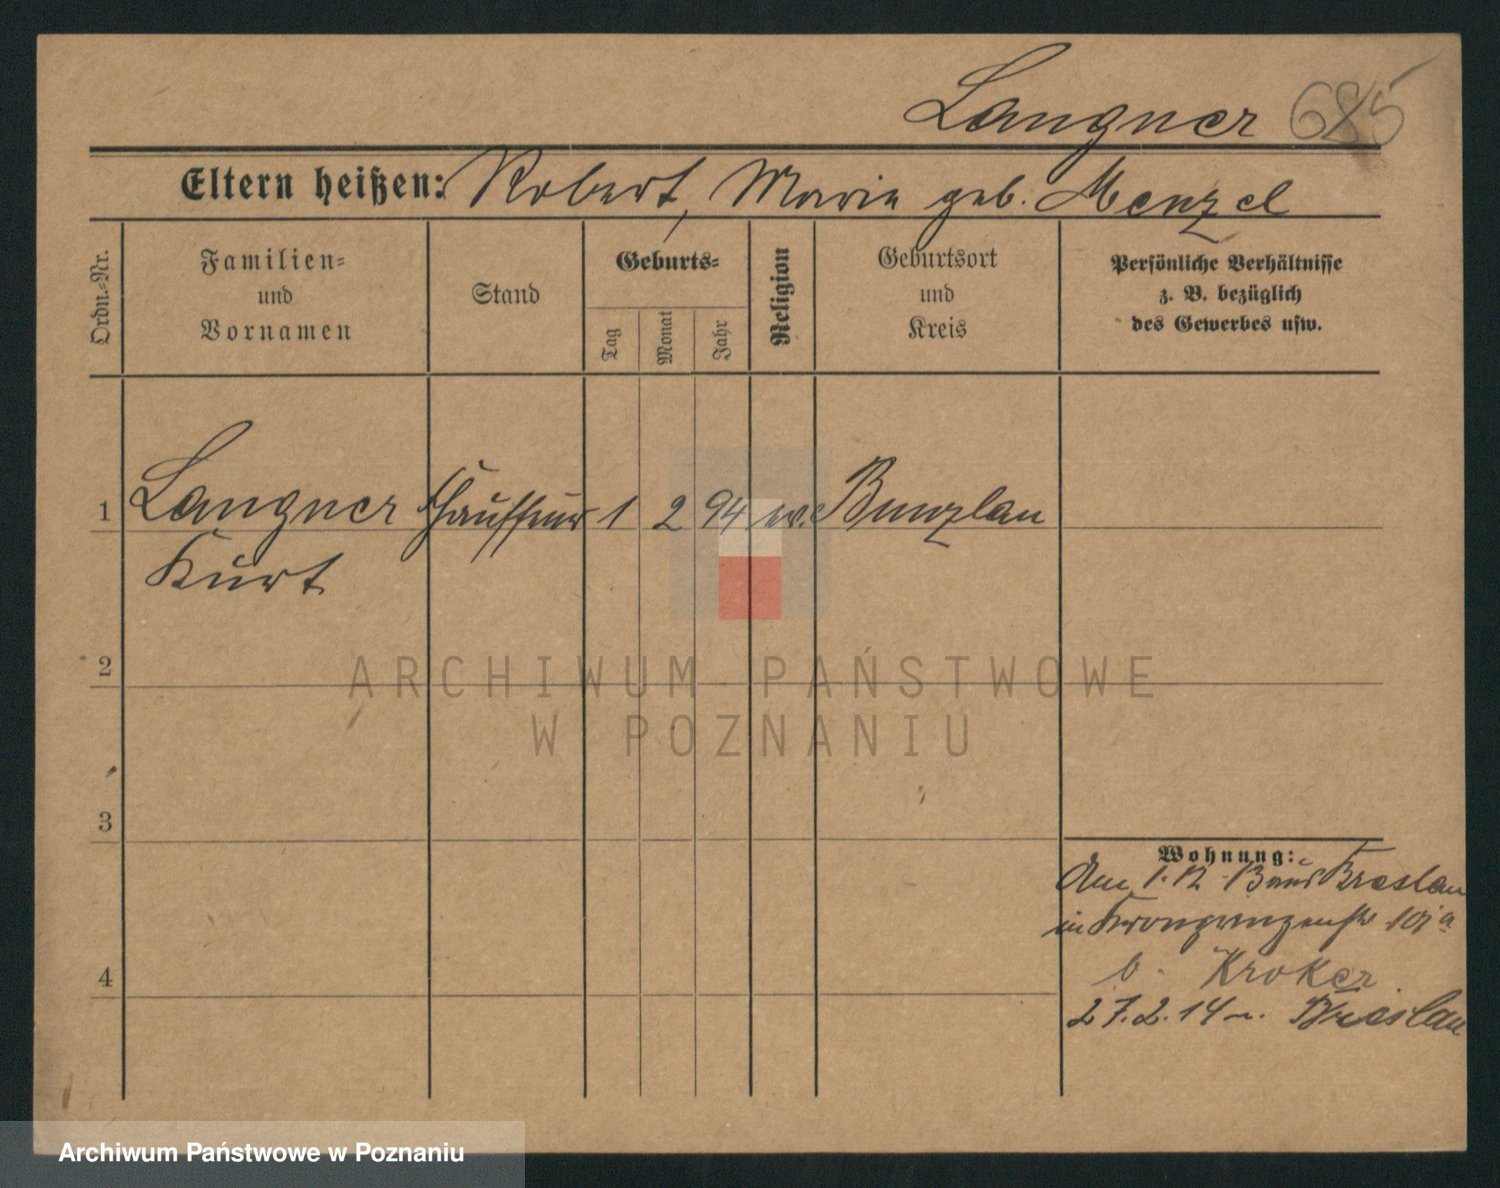 Langner 685
Eltern heißen: Robert, Marie geb. Menzel
Ordn.-Nr.
Familien-
und
Vornamen
Stand
Geburts-
Tag
Monat
Jahr
Religion
Geburtsort
und
Kreis
Persönliche Verhältnisse
z. B. bezüglich
des Gewerbes usw.
1 Langner Chauffeur 1 2 94 ev. Bunzlau
Kurt
2
3
4
Wohnung:
Am 1.12.13 aus Breslau
in Kronprinzenstr
b. Kroker
27.2.14 n. Breslau
ARCHIWUM PAŃSTWOWE
W POZNANIU
Archiwum Państwowe w Poznaniu